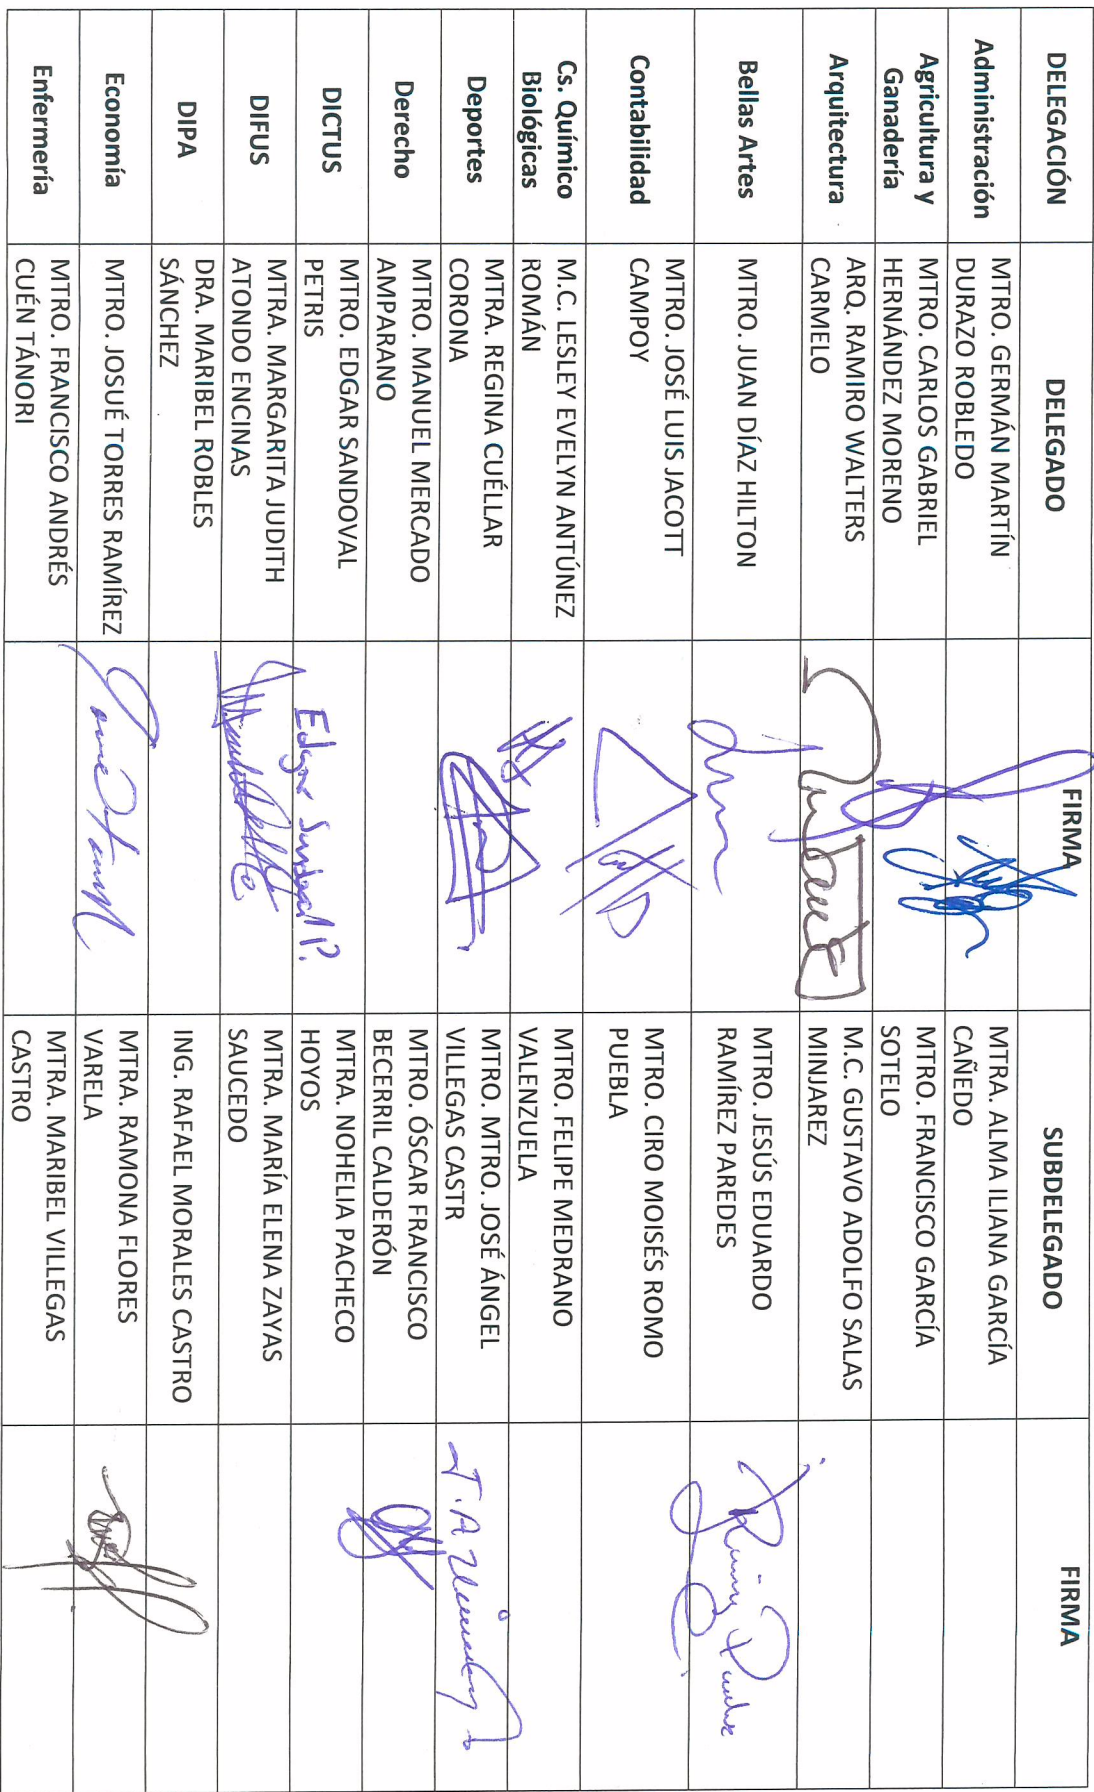 DELEGACIÓN DELEGADO FIRMA SUBDELEGADO FIRMA
Administración
MTRO. GERMÁN MARTÍN
DURAZO ROBLEDO
MTRA. ALMA ILIANA GARCÍA
CAÑEDO
Agricultura y
Ganadería
MTRO. CARLOS GABRIEL
HERNÁNDEZ MORENO
MTRO. FRANCISCO GARCÍA
SOTELO
Arquitectura
ARQ. RAMIRO WALTERS
CARMELO
M.C. GUSTAVO ADOLFO SALAS
MINJAREZ
Bellas Artes
MTRO. JUAN DÍAZ HILTON
MTRO. JESÚS EDUARDO
RAMÍREZ PAREDES
Contabilidad
MTRO. JOSÉ LUIS JACOTT
CAMPOY
MTRO. CIRO MOISÉS ROMO
PUEBLA
Cs. Químico
Biológicas
M.C. LESLEY EVELYN ANTÚNEZ
ROMÁN
MTRO. FELIPE MEDRANO
VALENZUELA
Deportes
MTRA. REGINA CUÉLLAR
CORONA
MTRO. MTRO. JOSÉ ÁNGEL
VILLEGAS CASTR
Derecho
MTRO. MANUEL MERCADO
AMPARANO
MTRO. ÓSCAR FRANCISCO
BECERRIL CALDERÓN
DICTUS
MTRO. EDGAR SANDOVAL
PETRIS
Edgar Sandoval P.
MTRA. NOHELIA PACHECO
HOYOS
DIFUS
MTRA. MARGARITA JUDITH
ATONDO ENCINAS
MTRA. MARÍA ELENA ZAYAS
SAUCEDO
DIPA
DRA. MARIBEL ROBLES
SÁNCHEZ
ING. RAFAEL MORALES CASTRO
Economía
MTRO. JOSUÉ TORRES RAMÍREZ
MTRA. RAMONA FLORES
VARELA
Enfermería
MTRO. FRANCISCO ANDRÉS
CUÉN TÁNORI
MTRA. MARIBEL VILLEGAS
CASTRO